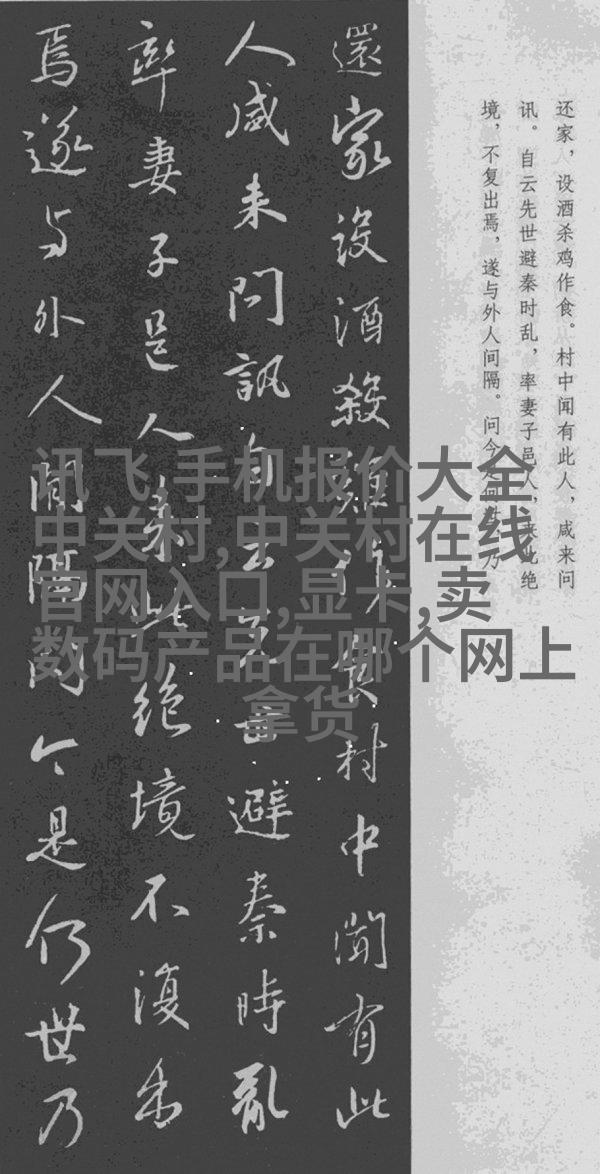 还家，设酒杀鸡作食。村中闻有此人，咸来问
讯。自云先世避秦时乱，率妻子邑人，来此绝
境，不复出焉，遂与外人间隔。问今是何世？乃
還家設酒殺雞作食村中聞有此
人咸来問訊自云先世避秦時亂
率妻子邑人来此絶境不復出
焉遂与外人間隔问今是何世乃
讯飞,手机报价大全
中关村,中关村在线
官网入口,显卡,卖
数码产品在哪个网上
拿货